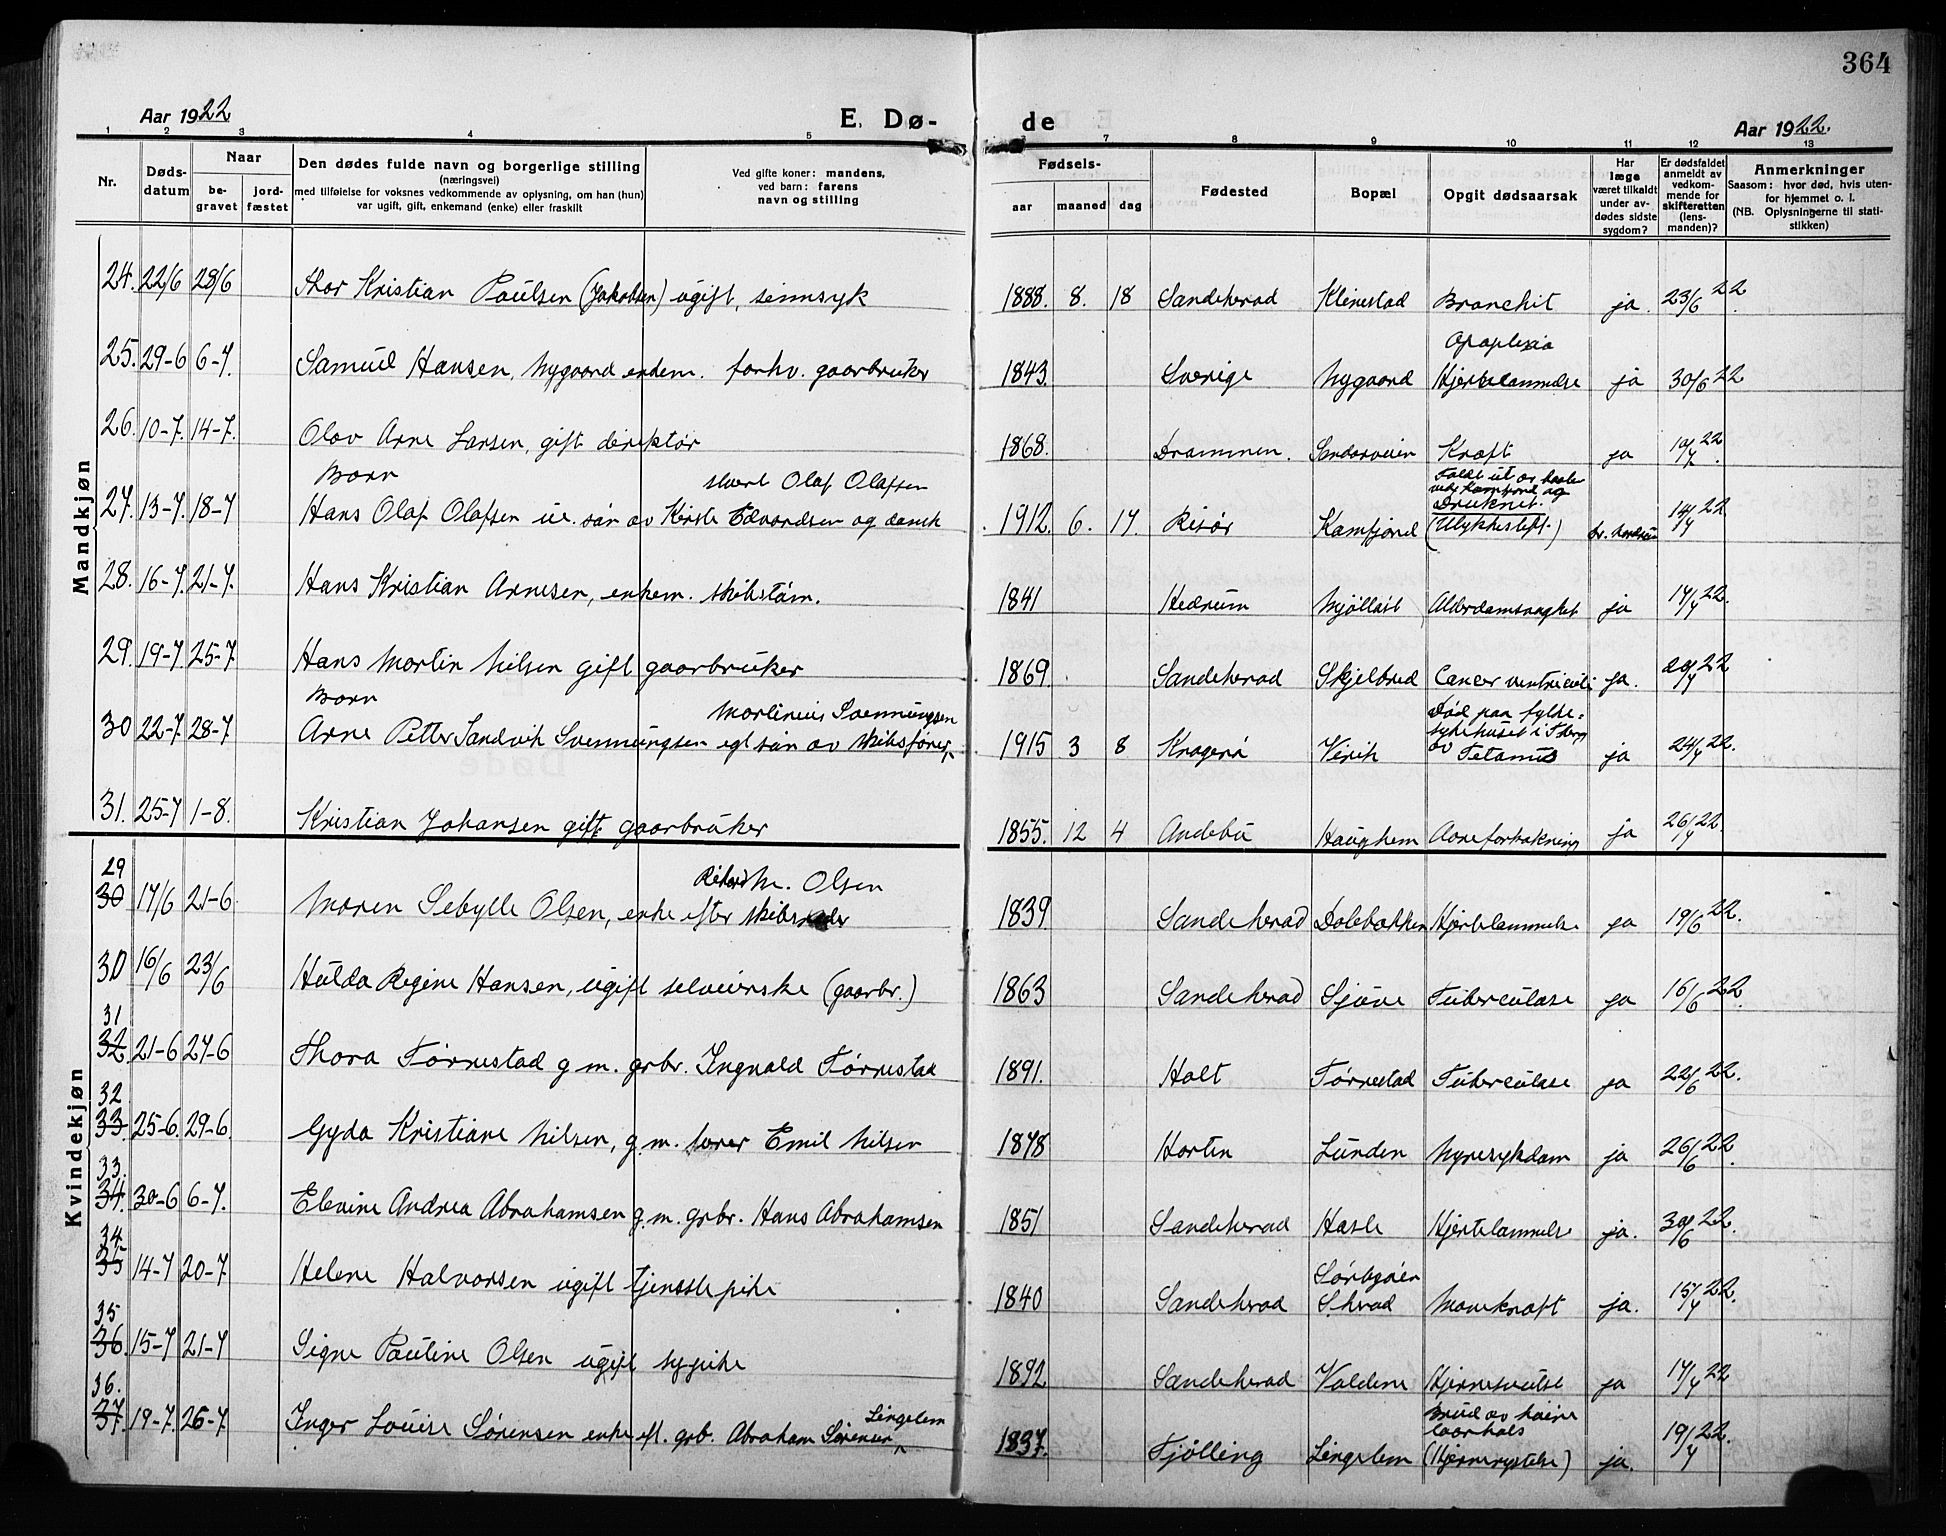 364
Aar 1922
E. Dø-
de
Aar 1922.
1 2 3 4 5 7 8 9 10 11 12 13
Nr.
Døds-datum
Naar
be-gravet
jord-fæstet
Den dødes fulde navn og borgerlige stilling
(næringsvei)
med tilføielse for voksnes vedkommende av oplysning, om han (hun)
var ugift, gift, enkemand (enke) eller fraskilt
Ved gifte koner: mandens,
ved barn: farens
navn og stilling
Fødsels-
aar maaned dag
Fødested
Bopæl
Opgit dødsaarsak
Har læge været tilkaldt under av-dødes sidste sygdom?
Er dødsfaldet anmeldt av vedkom-mende for skifteretten (lens-manden)?
Anmerkninger
Saasom: hvor død, hvis uten-
for hjemmet o. l.
(NB. Oplysningerne til stati-
stikken)
Mandkjøn
24. 22/6 28/6 Thor Kristian Paulsen (Jakobsen) ugift, sinnsyk 1888. 8. 18 Sandeherad Klinestad Bronchit ja. 23/6 22.
Apoplexia
25. 29-6 6-7. Samuel Hansen, Nygaard enkem. forhv. gaarbruker 1843. Sverige Nygaard Hjertelammelse ja 30/6 22
26. 10-7. 14-7. Olav Arne Larsen, gift direktør 1868. Drammen. Sandarveien Kræft ja 10/7 22.
Barn
Olaf Olafsen
Faldt ut av
ved Kamfjord og
Druknet.
27. 13-7. 18-7 Hans Olaf Olafsen ue. søn av Kirste Edvardsen og dansk 1912. 6. 17. Risør Kamfjord (Ulykkestilf.) 14/7 22
28. 16-7. 21-7. Hans Kristian Arnesen, enkem. skibstøm. 1841 Hedrum Mjølløst Alderdomssvaghet ja 17/7 22.
29. 19-7 25-7. Hans Martin Nilsen gift gaarbruker 1869. Sandeherad Skjelbred Cancer ventriculi ja. 20/7 22
Barn
Martinius Svenningsen
Død paa fylke-
sykehuset i Tberg
av
30 22-7. 28-7 Arne Petter Sandvik Svenningsen egt søn av skibsfører 1915 3 8 Kragerø Virik Tetanus ja 24/7 22.
31. 25-7 1-8. Kristian Johansen gift gaarbruker 1855. 12 4 Andebu Haughem Aareforkalkning ja 26/7 22.
Kvindekjøn
29
30 17/6 21-6 Maren Sebylle Olsen, enke efter skibsreder M. Olsen 1839. Sandeherad Dolebakken Hjertelammelse ja 19/6 22.
30 16/6 23/6 Hulda Regine Hansen, ugift selveierske (gaarbr.) 1863 Sandeherad Sjøve Tuberculose ja 16/6 22.
31
32 21-6 27-6 Thora Tørrestad g m. grbr. Ingvald Tørrestad 1891. Holt Tørrestad Tuberculose ja 22/6 22.
32
33. 25-6. 29-6. Gyda Kristiane Nilsen, g.m. fører Emil Nilsen 1878 Horten Lunden Nyresykdom ja 26/6 22.
33.
34. 30-6 6-7. Elevine Andrea Abrahamsen g.m. grbr. Hans Abrahamsen 1851 Sandeherad Hasle Hjertelammelse ja. 30/6 22.
34.
35 14-7 20-7. Helene Halvorsen ugift tjenestepike 1840 Sandeherad Sørbyøen S.herad Mavekræft ja. 15/7 22.
35
36. 15-7 21-7 Signe Pauline Olsen ugift sypike 1892 Sandeherad Valdene Hjernesvulst ja 17/7 22
36.
Lingelem
Brud av høire
laarhals
37. 19-7. 26-7. Inger Louise Sørensen enke ef. grb. Abraham Sørensen 1837. Tjølling Lingelem (Hjernerystelse) ja. 19/7 22.